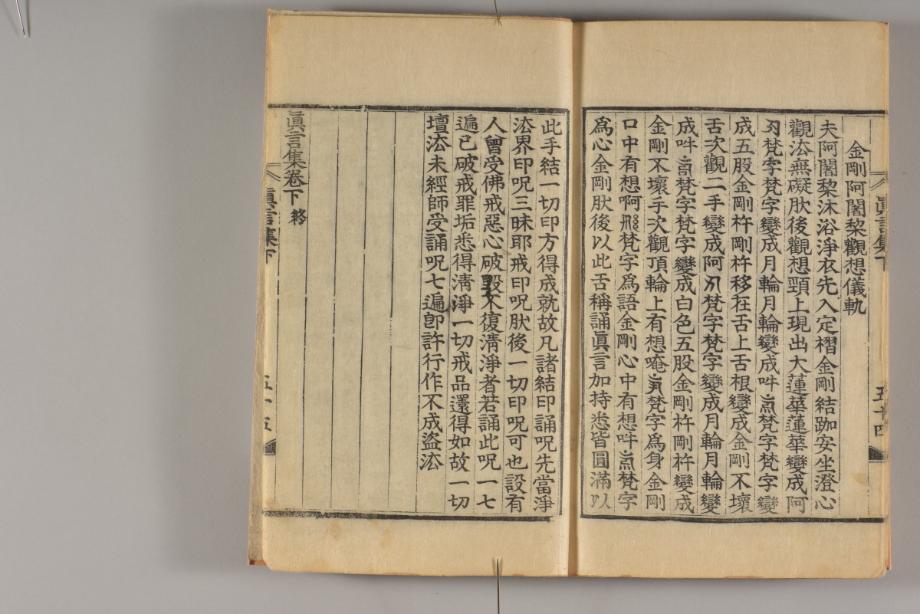 金剛阿闍黎觀想儀軌
夫阿闍黎沐浴淨衣先入定褶金剛結跏安坐澄心
觀㳒無礙肰後觀想頸上現出大蓮華蓮華變成阿
梵字梵字變成月輪月輪變成吽梵字梵字變
成五股金剛杵剛杵移在舌上舌根變成金剛不壞
舌次觀二手變成阿梵字梵字變成月輪月輪變
成吽梵字梵字變成白色五股金剛杵剛杵變成
金剛不壞手次觀頂輪上有想唵梵字爲身金剛
口中有想啊梵字爲語金剛心中有想吽梵字
爲心金剛肰後以此舌稱誦眞言加持悉皆圓滿以
眞言集下
五十四
此手結一切印方得成就故凡諸結印誦呪先當淨
㳒界印呪三昧耶戒印呪肰後一切印呪可也設有
人曾受佛戒惡心破毀不復清淨者若誦此呪一七
遍已破戒罪垢悉得清淨一切戒品還得如故一切
壇㳒未經師受誦呪七遍卽許行作不成盜㳒
眞言集卷下終
眞言集下
五十五